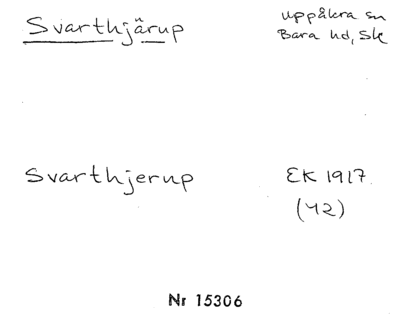 Svarthjärup
Uppåkra sn
Bara hd, Sk
Svarthjerup
EK 1917
(42)
Nr 15306